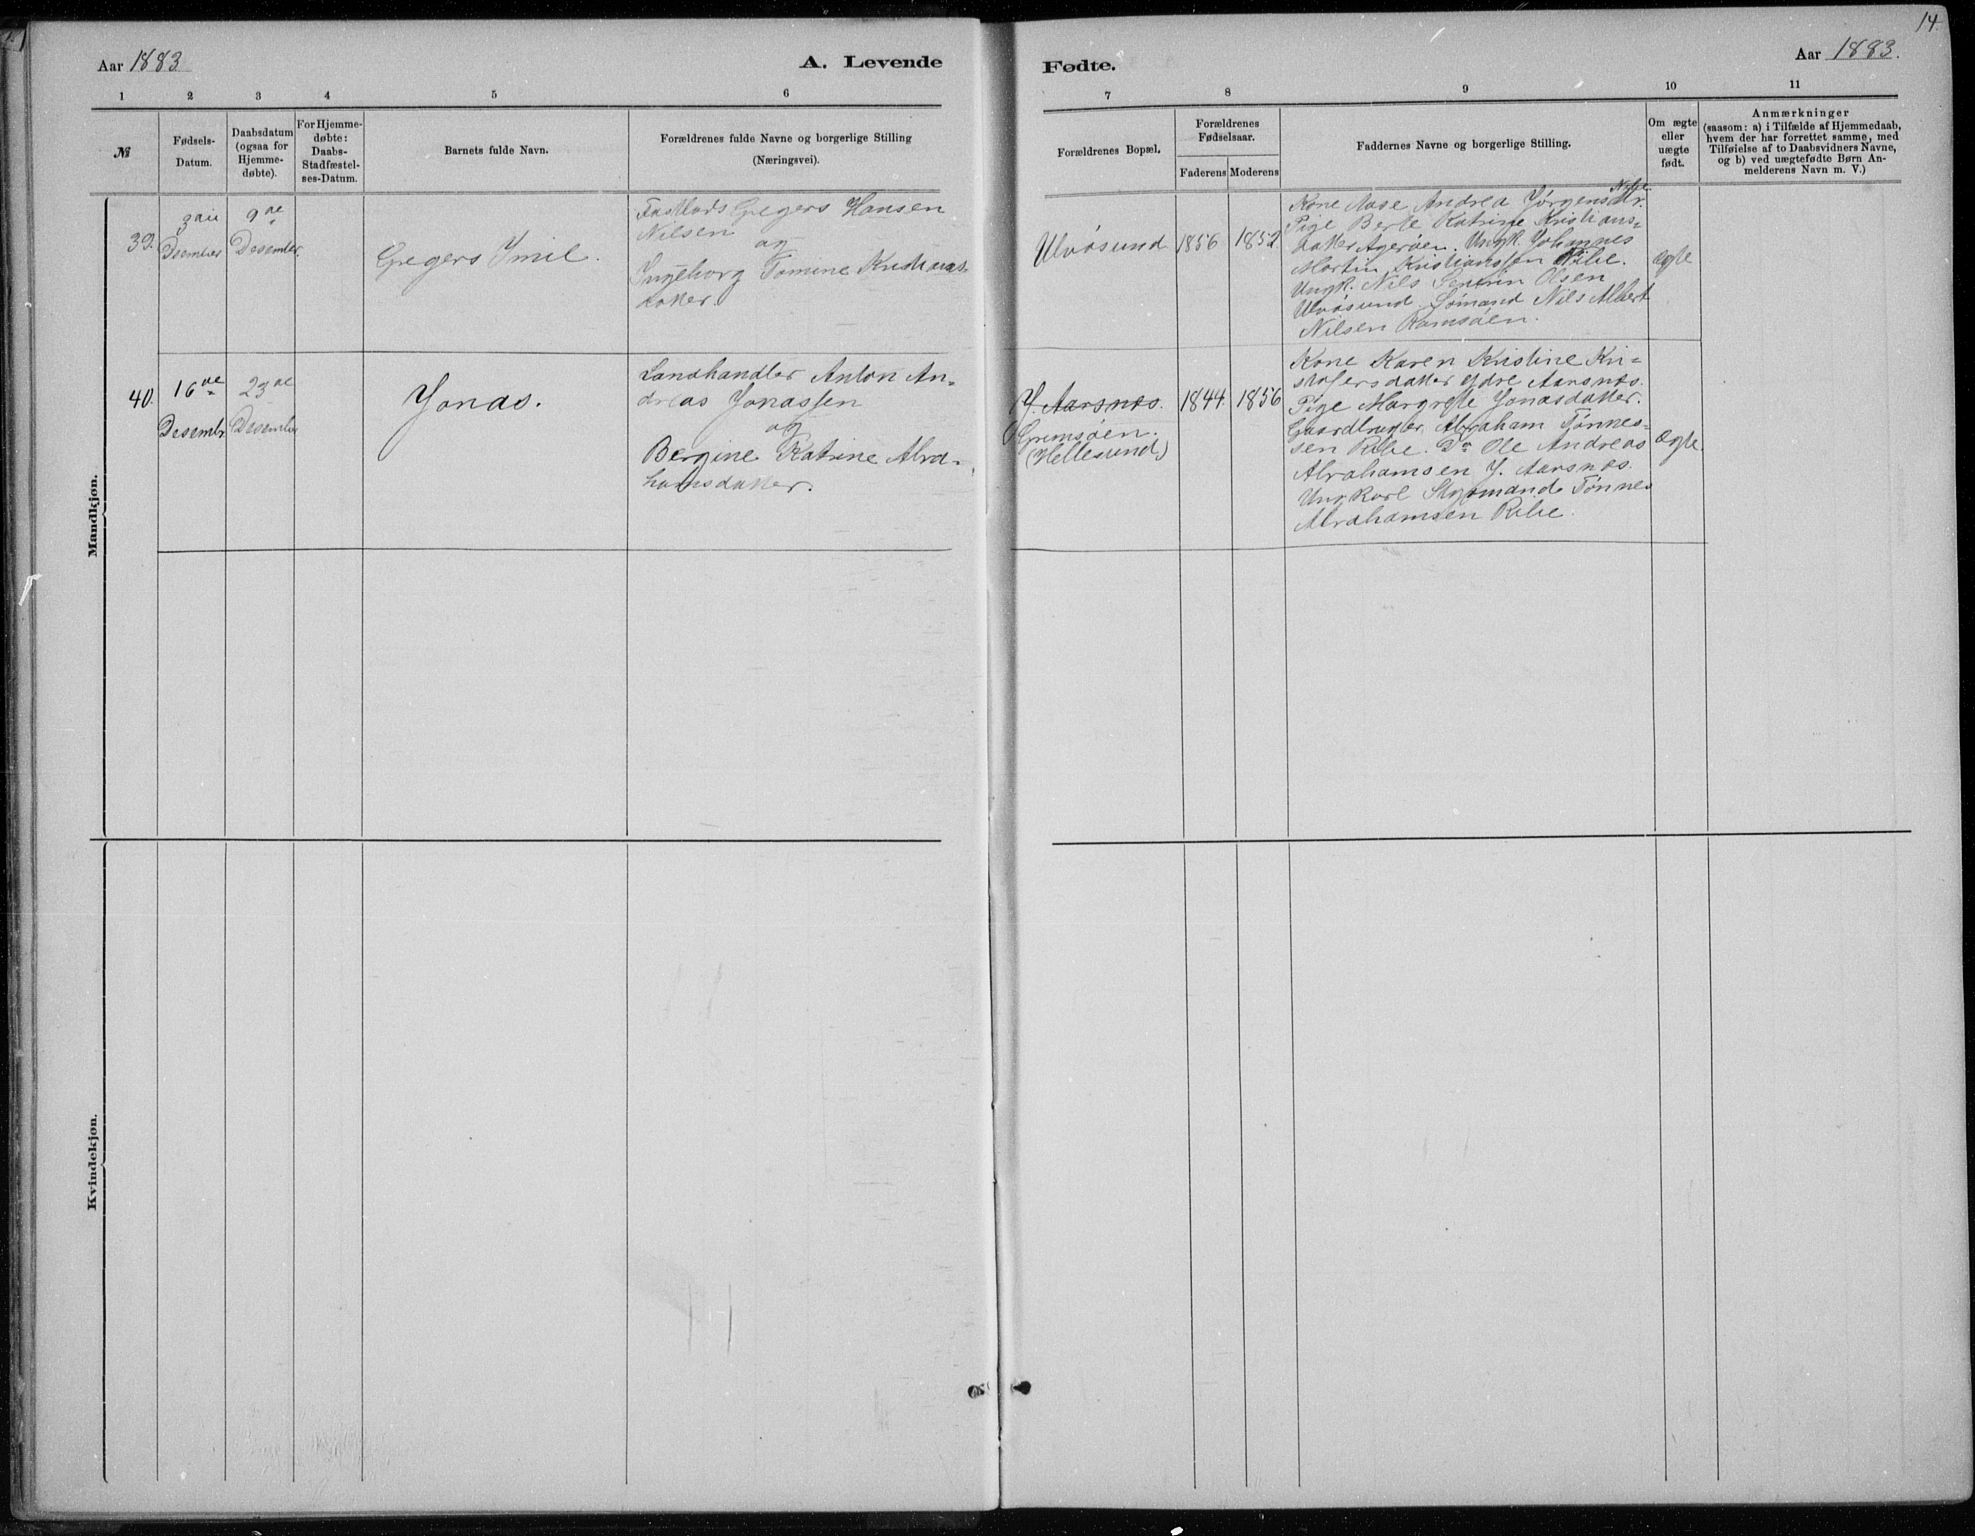 14
Aar 1883
A. Levende
Fødte.
Aar 1883.
1 2 3 4 5 6 7 8 9 10 11
№
Fødsels-
Datum.
Daabsdatum
(ogsaa for
Hjemme-
døbte).
For Hjemme-
døbte:
Daabs-
Stadfæstel-
ses-Datum.
Barnets fulde Navn.
Forældrenes fulde Navne og borgerlige Stilling
(Næringsvei).
Forældrenes Bopæl.
Forældrenes
Fødselsaar.
Faderens
Moderens
Faddernes Navne og borgerlige Stilling.
Om ægte
eller
uægte
født.
Anmærkninger
(saasom: a) i Tilfælde af Hjemmedaab,
hvem der har forrettet samme, med
Tilføielse af to Daabsvidners Navne,
og b) ved uægtefødte Børn An-
melderens Navn m. V.)
Mandkjøn.
39.
3die
Desember
9de
Desember.
Gregers Ymil.
Gregers Hansen
Nilsen
og
Ingeborg Tomine Kristians-
datter.
Ulvøsund
1856
1852
Kone Aase Andrea Jørgensdtr.
Pige Berte Katrine Kristians-
datter Agerøen. Ungk. Johannes
Martin Kristianssen Ribe.
Ungk. Nils Olsen
Ulvøsund. Sømand Nils Albert
Nilsen Ramsøen.
Ægte
40.
16de
Desembr
23de
Desember
Jonas.
Landhandler Anton An-
dreas Jonassen
og
Bergine Katrine Abra-
hamsdatter.
Y. Aarsnes.
Grimsøen.
(Hellesund)
1844
1856
Kone Karen Kristine Kri-
stofersdatter Ydre Aarsnes.
Pige Margrete Jonasdatter.
Gaardbruger Abraham Tønnes-
sen Ribe. Do Ole Andreas
Abrahamsen Y. Aarsnes.
Ungkarl Styrmand Tønnes
Abrahamsen Ribe.
Ægte.
Kvindekjøn.